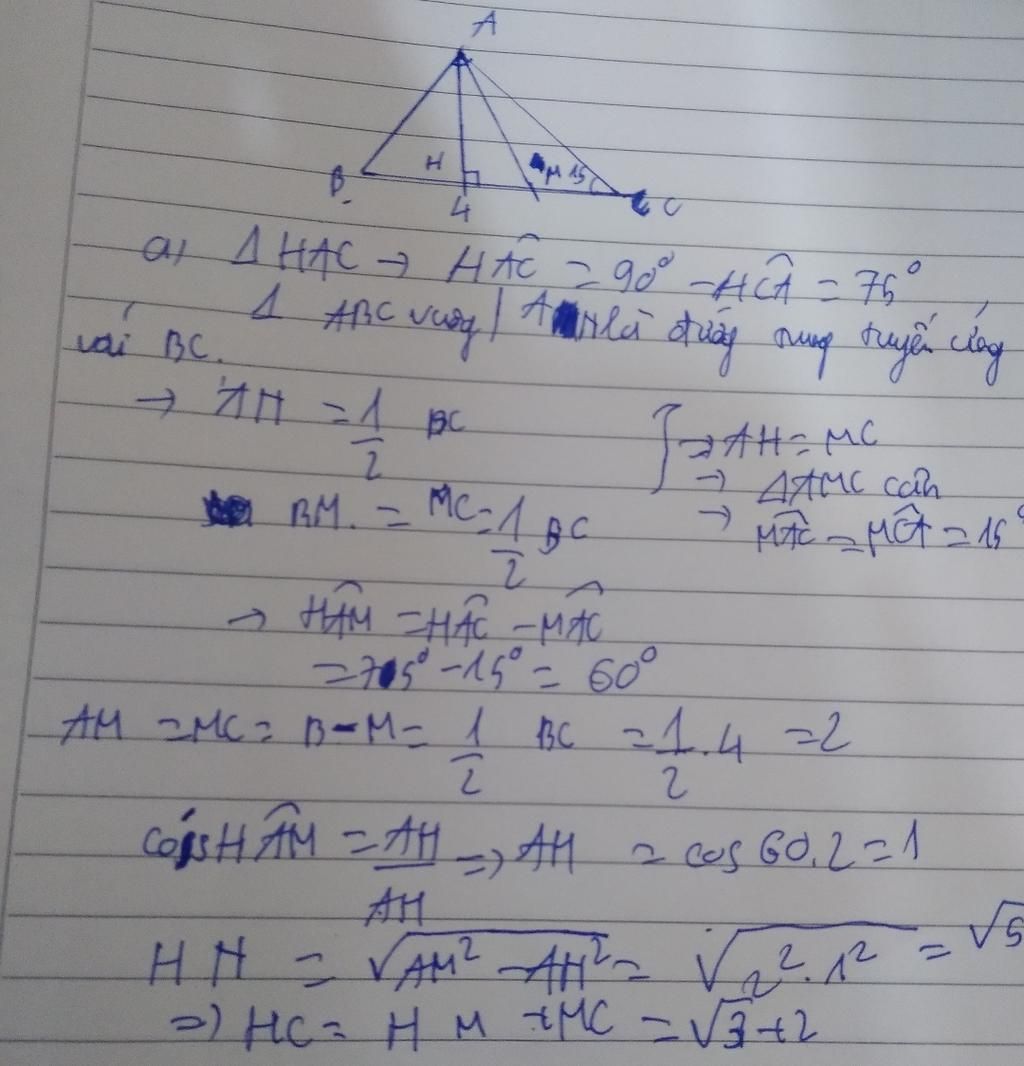 A
B H M 15 C
4
a) Δ HAC → HÂC = 90° - HĈA = 75°
Δ ABC vuông / AM là đường trung tuyến ứng
với BC.
→ AM = 1/2 BC
BM = MC = 1/2 BC
} → AM = MC
→ ΔAMC cân
→ MÂC = MĈA = 15°
→ HÂM = HÂC - MÂC
= 75° - 15° = 60°
AM = MC = B-M = 1/2 BC = 1/2 . 4 = 2
cos HÂM = AH/AM => AH = cos 60.2 = 1
HM = √(AM² - AH²) = √(2² . 1²) =
=> HC = HM + MC = √3 + 2